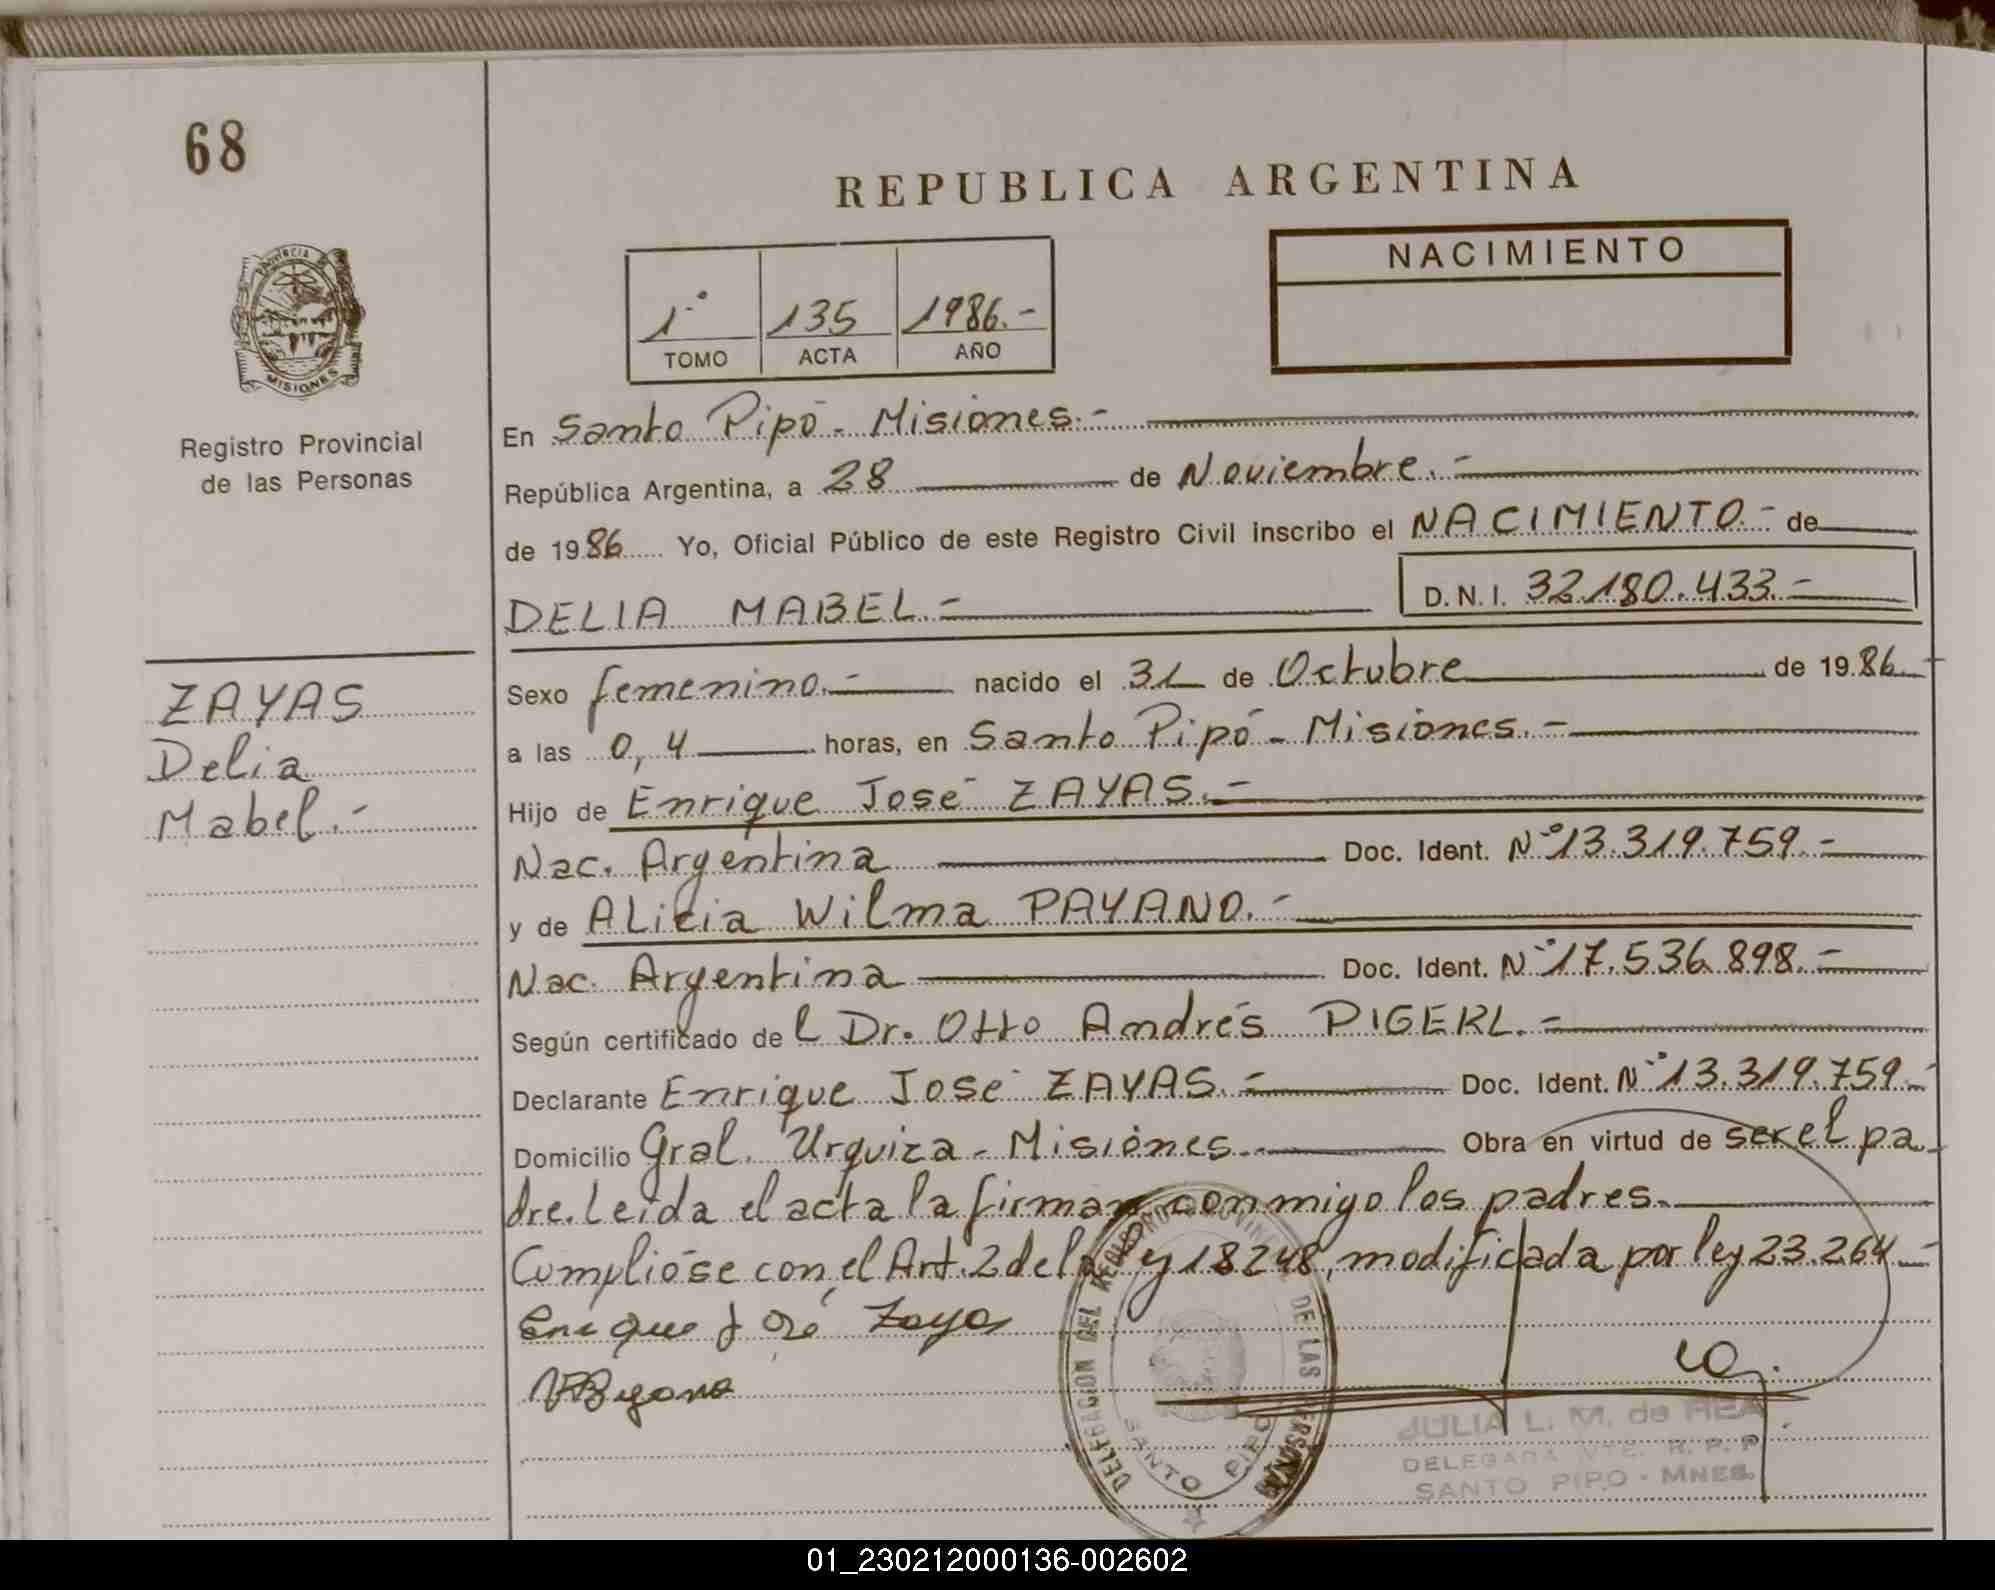 68
REPUBLICA ARGENTINA
NACIMIENTO
1º 135 1986.-
TOMO ACTA AÑO
PROVINCIA DE
MISIONES
Registro Provincial
de las Personas
En Santo Pipó - Misiones.-
República Argentina, a 28 de Noviembre.-
de 1986 Yo, Oficial Público de este Registro Civil inscribo el NACIMIENTO.- de
DELIA MABEL.- D.N.I. 32.180.433.-
ZAYAS
Delia
Mabel.-
Sexo femenino.- nacido el 31 de Octubre de 1986
a las 0,4 horas, en Santo Pipó - Misiones.-
Hijo de Enrique José ZAYAS.-
Nac. Argentina Doc. Ident. Nº 13.319.759.-
y de Alicia Wilma PAYANO.-
Nac. Argentina Doc. Ident. Nº 17.536.898.-
Según certificado del Dr. Otto Andrés PIGERL.-
Declarante Enrique José ZAYAS.- Doc. Ident. Nº 13.319.759.-
Domicilio Gral. Urquiza - Misiones.- Obra en virtud de ser el pa
dre. Leída el acta la firman conmigo los padres.
Cumplióse con el Art. 2 de la ley 18248, modificada por ley 23.264.-
Enrique José Zayas
DELEGACION DEL REGISTRO PROVINCIAL DE LAS PERSONAS
SANTO PIPO
JULIA L. M. de REA
DELEGADA VTE. R. P. P
SANTO PIPO - MNES.
01_230212000136-002602